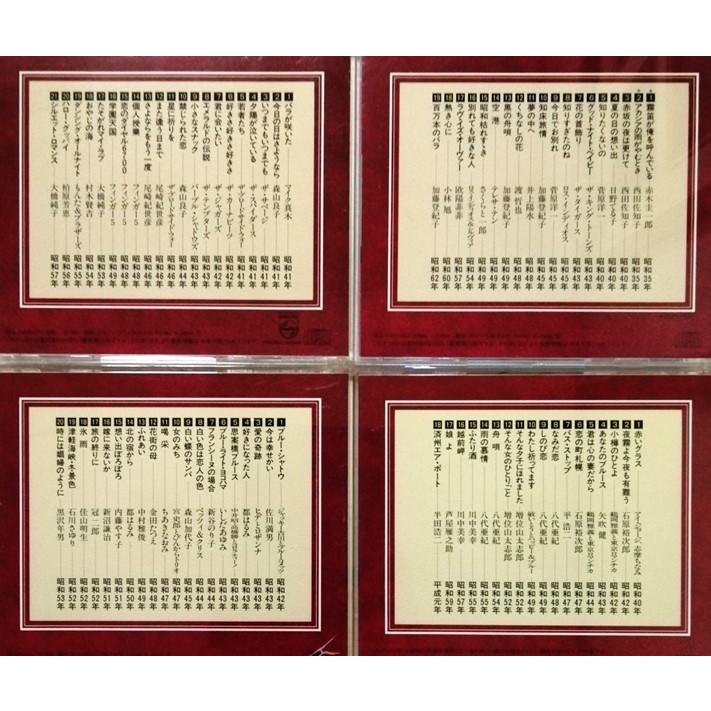 1 バラが咲いた マイク真木 昭和41年
2 今日の日はさようなら 森山良子 昭和41年
3 いつまでもいつまでも ザ・サベージ 昭和41年
4 夕陽が泣いている ザ・スパイダース 昭和41年
5 若者たち ザ・ブロードサイド・フォー 昭和41年
6 好きさ好きさ好きさ ザ・カーナビーツ 昭和42年
7 君に会いたい ザ・ジャガーズ 昭和42年
8 エメラルドの伝説 ザ・テンプターズ 昭和43年
9 小さなスナック パープル・シャドウズ 昭和43年
10 禁じられた恋 森山良子 昭和44年
11 星に祈りを ザ・ブロードサイド・フォー
12 また逢う日まで 尾崎紀世彦 昭和46年
13 さよならをもう一度 尾崎紀世彦 昭和46年
14 個人授業 フィンガー5 昭和48年
15 恋のダイヤル6700 フィンガー5 昭和48年
16 学園天国 フィンガー5 昭和49年
17 たそがれマイ・ラブ 大橋純子 昭和53年
18 おやじの海 村木賢吉 昭和54年
19 ダンシング・オールナイト もんた&ブラザーズ 昭和55年
20 ハロー・グッバイ 柏原芳恵
21 シルエット・ロマンス 大橋純子 昭和57年
1 霧笛が俺を呼んでいる 赤木圭一郎 昭和35年
2 アカシアの雨がやむとき 西田佐知子 昭和35年
3 赤坂の夜は更けて 西田佐知子 昭和40年
4 夏の日の想い出 日野てる子 昭和40年
5 知りたくないの 菅原洋一 昭和40年
6 グッド・ナイト・ベイビー ザ・キング・トーンズ 昭和43年
7 花の首飾り ザ・タイガース 昭和43年
8 知りすぎたのね ロス・インディオス
9 今日でお別れ 菅原洋一
10 知床旅情 加藤登紀子 昭和45年
11 夢の中へ 井上陽水 昭和48年
12 くちなしの花 渡哲也 昭和48年
13 黒の舟唄 加藤登紀子
14 空港 テレサ・テン 昭和49年
15 昭和枯れすゝき さくらと一郎 昭和49年
16 別れても好きな人 ロス・インディオス&シルヴィア 昭和54年
17 ラヴ・イズ・オーヴァー 欧陽菲菲 昭和57年
18 熱き心に 小林旭 昭和60年
19 百万本のバラ 加藤登紀子 昭和62年
1 ブルー・シャトウ ジャッキー吉川とブルー・コメッツ 昭和42年
2 今は幸せかい 佐川満男 昭和43年
3 愛の奇跡 ヒデとロザンナ 昭和43年
4 好きになった人 都はるみ 昭和43年
5 思案橋ブルース 中井昭・高橋勝とコロラティーノ 昭和43年
6 ブルー・ライト・ヨコハマ いしだあゆみ 昭和43年
7 フランシーヌの場合 新谷のり子 昭和44年
8 白い色は恋人の色 ベッツィ&クリス 昭和44年
9 白い蝶のサンバ 森山加代子 昭和45年
10 女のみち 宮史郎とぴんからトリオ 昭和47年
11 喝采 ちあきなおみ 昭和47年
12 花街の母 金田たつえ 昭和48年
13 ふれあい 中村雅俊 昭和49年
14 北の宿から 都はるみ 昭和50年
15 想い出ぼろぼろ 内藤やす子 昭和51年
16 嫁に来ないか 新沼謙治 昭和51年
17 旅の終りに 冠二郎 昭和52年
18 氷雨 佳山明生 昭和52年
19 津軽海峡・冬景色 石川さゆり 昭和52年
20 時には娼婦のように 黒沢年男 昭和53年
1 赤いグラス アイ・ジョージ、志摩ちなみ 昭和40年
2 夜霧よ今夜も有難う 石原裕次郎 昭和42年
3 小樽のひとよ 鶴岡雅義と東京ロマンチカ 昭和42年
4 あなたのブルース 矢吹健 昭和43年
5 君は心の妻だから 鶴岡雅義と東京ロマンチカ 昭和44年
6 恋の町札幌 石原裕次郎 昭和47年
7 バス・ストップ 平浩二 昭和47年
8 なみだ恋 八代亜紀 昭和48年
9 しのび恋 八代亜紀
10 わたし祈ってます 敏いとうとハッピー&ブルー 昭和49年
11 そんな夕子にほれました 増位山太志郎 昭和49年
12 そんな女のひとりごと 増位山太志郎 昭和52年
13 舟唄 八代亜紀 昭和54年
14 雨の慕情 八代亜紀 昭和55年
15 ふたり酒 川中美幸 昭和55年
16 越前岬 川中美幸
17 娘よ 芦屋雁之助 昭和59年
18 済州エア・ポート 半田浩二 平成元年
PHILIPS